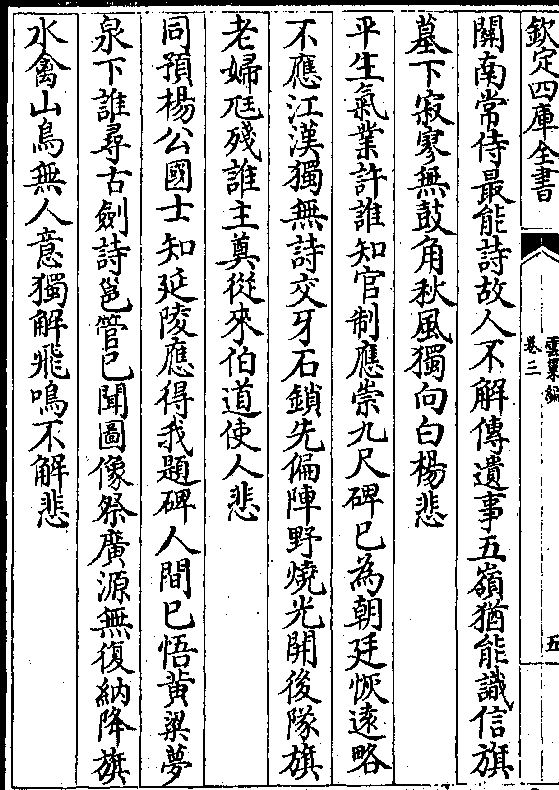 欽定四庫全書
雲巢編
卷三
五
關南常侍最能詩故人不解傳遺事五嶺猶能識信旗
墓下寂寥無鼓角秋風獨向白楊悲
平生氣業許誰知官制應崇九尺碑已為朝廷恢遠略
不應江漢獨無詩交牙石鎖先偏陣野燒光開後隊旗
老婦尫殘誰主奠從來伯道使人悲
同預楊公國士知延陵應得我題碑人間已悟黃粱夢
泉下誰尋古劍詩邕管已聞圖像祭廣源無復納降旗
水禽山鳥無人意獨解飛鳴不解悲